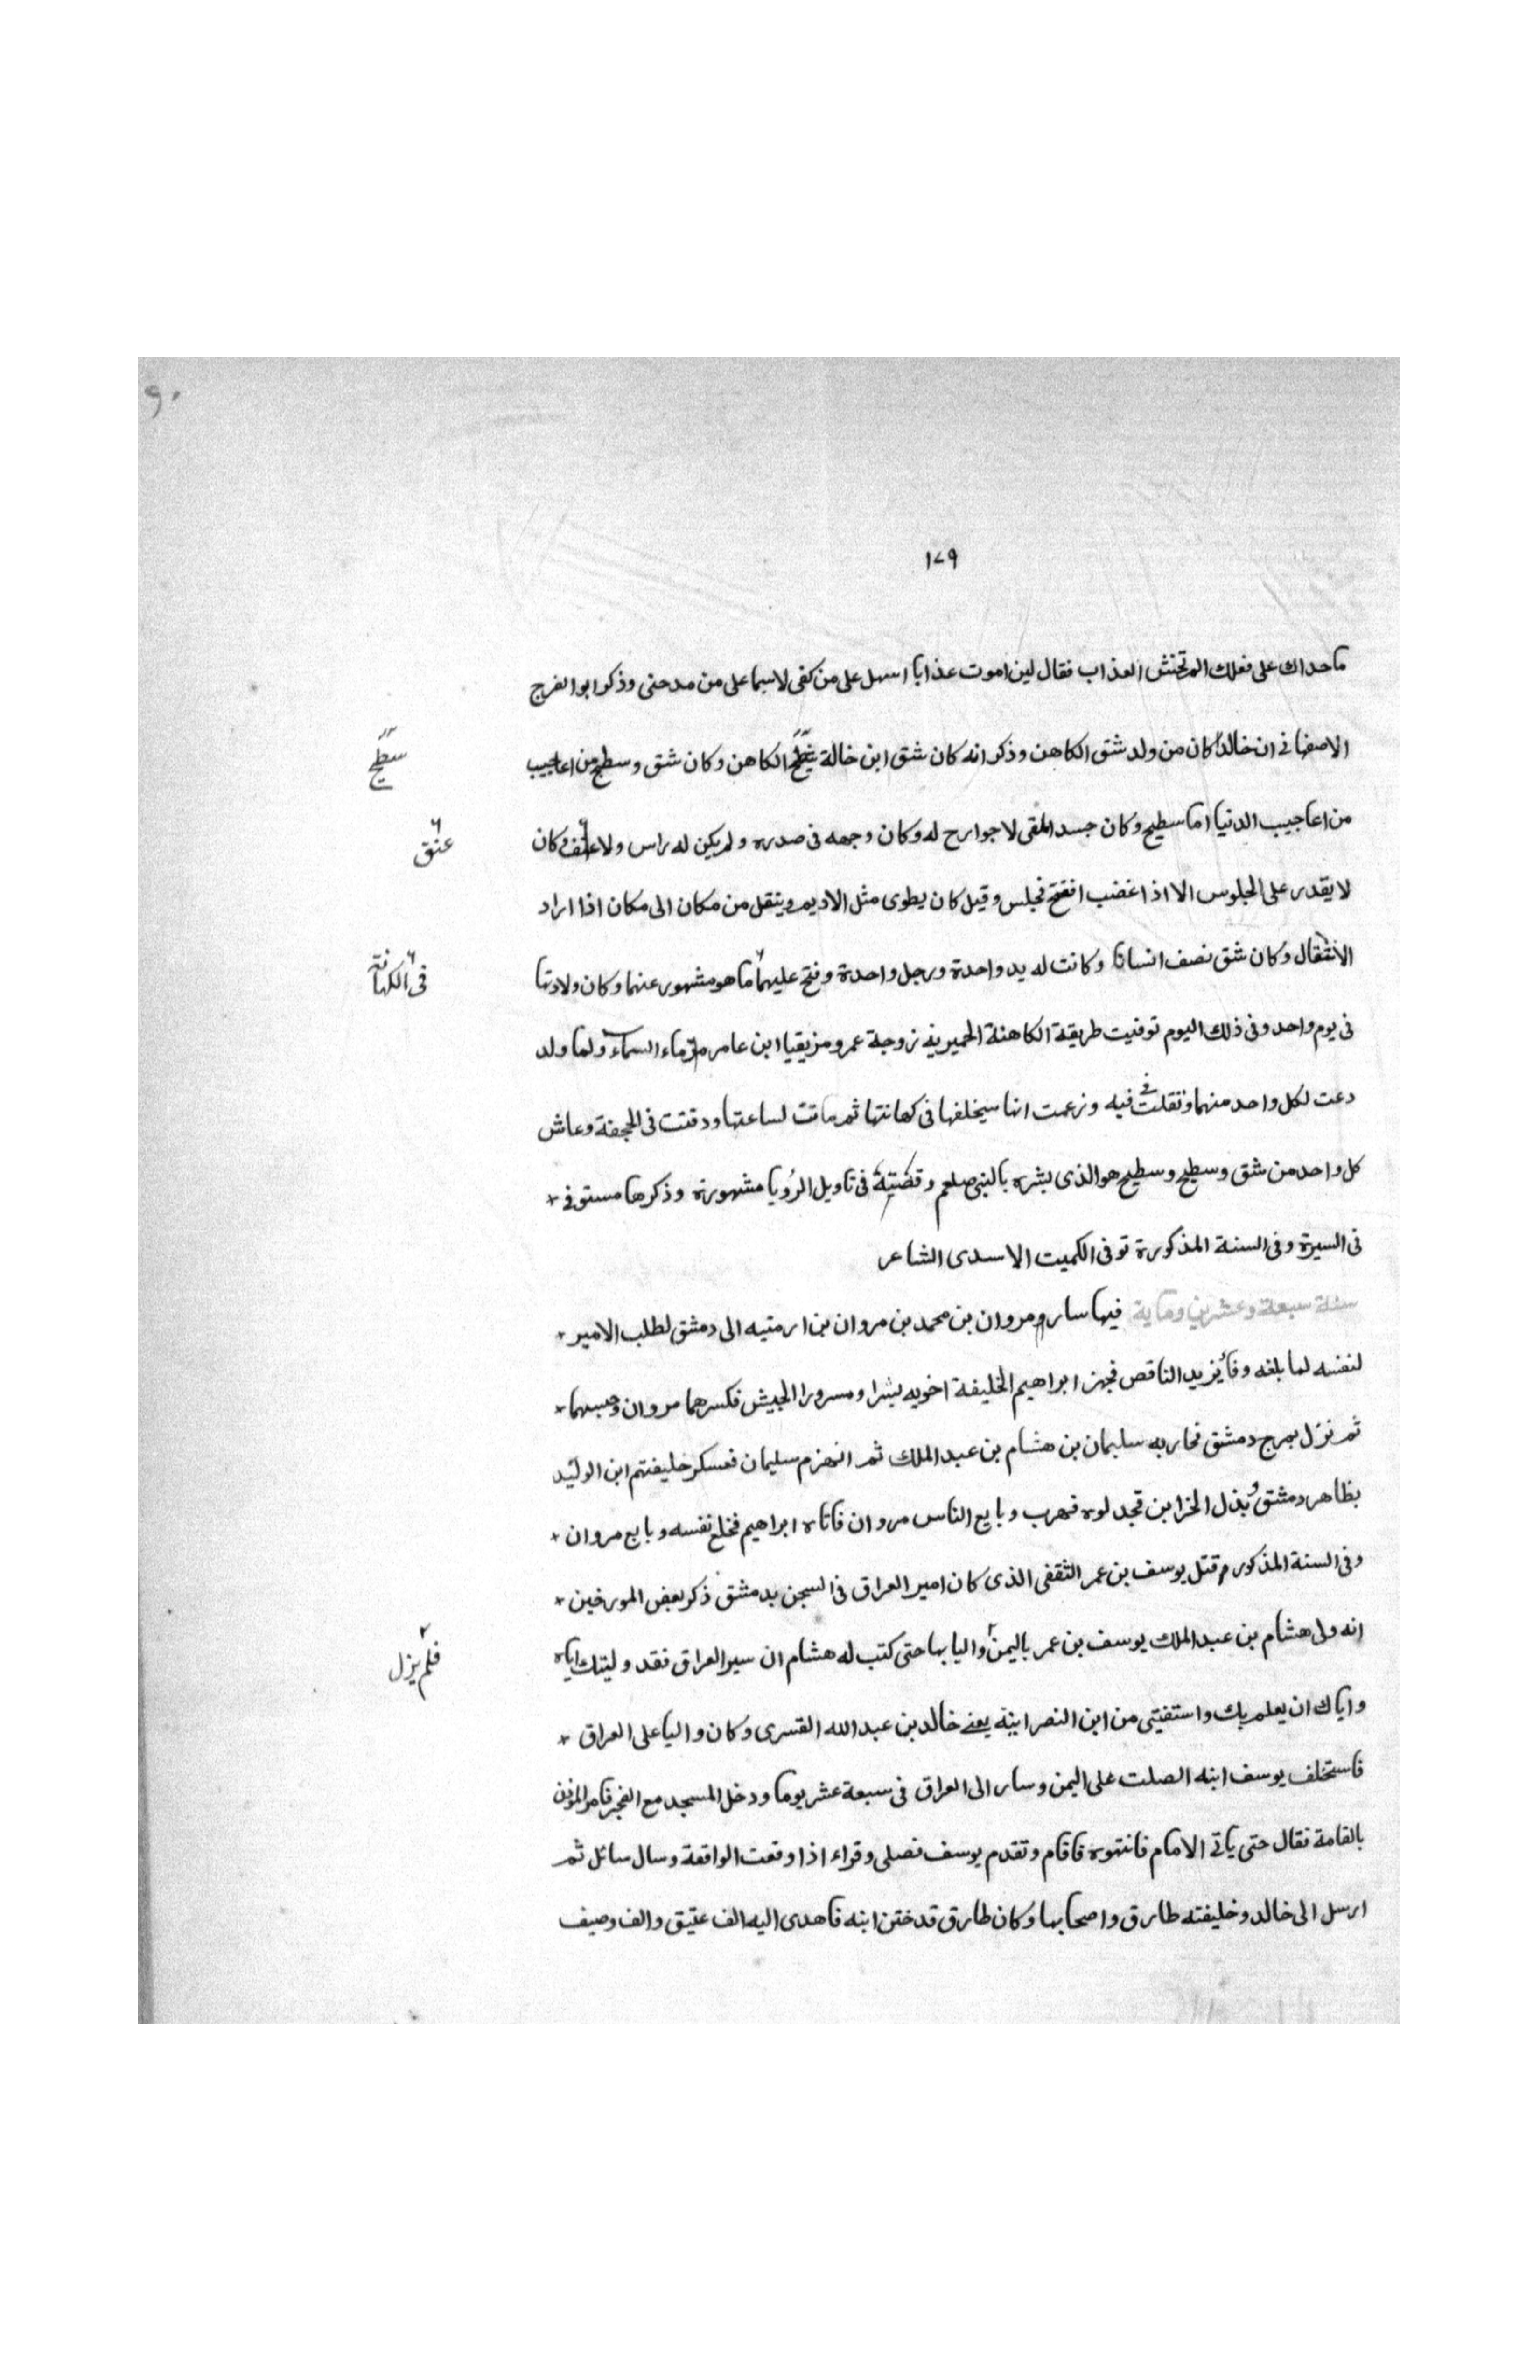 ١٧٩
ما حداك على فعلك المر تخش العذاب فقال لين اموت عذابا اسهل على من كفى لاسيما على من مدحنى وذكر ابو الفرج
الاصفهانى ان خالدا كان من ولد شق الكاهن وذكر انه كان شق ابن خالة الكاهن وكان شق وسطيح من اعاجيب
سطيح
من اعاجيب الدنيا اما سطيح وكان جسد الملقى لا جوارح له وكان وجهه فى صدره ولم يكن له راس ولا عنف وكان
عنق
لا يقدر على الجلوس الا اذا غضب انفتخ فجلس وقيل كان يطوى مثل الاديم وينقل من مكان الى مكان اذا اراد
الانتقال وكان شق نصف انسانا وكانت له يد واحدة ورجل واحدة وفتح عليهما ما هو مشهور عنهما وكان ولادتها
فى الكهانة
فى يوم واحد وفى ذلك اليوم توفيت طريقة الكاهنة الحميرية زوجة عمرو مزيقيا ابن عامر ماء السماء ولما ولد
دعت لكل واحد منهما وتفلت فى فيه وزعمت انها سيخلفها فى كهانتها ثم ماتت لساعتها ودفنت فى الجحفة وعاش
كل واحد من شق وسطيح وسطيح هو الذى بشره بالنبى صلعم وقضيته فى تاويل الرؤيا مشهورة وذكرها مستوفى
فى السيرة وفى السنة المذكورة توفى الكميت الاسدى الشاعر
سنة سبعة وعشرين وماية فيها سار ومروان بن محمد بن مروان بن ارمنيه الى دمشق لطلب الامير
لنفسه لما بلغه وفأ يزيد الناقص فجهز ابراهيم الخليفة اخويه بشرا ومسرورا الجيش فكسرهما مروان وحبسهما
ثم نزل بمرج دمشق فحاربه سليمان بن هشام بن عبد الملك ثم انهزم سليمان فعسكر خليفتهم ابن الوليد
بظاهر دمشق وبذل الخزاين فجدلوه فهرب وبايع الناس مروان فاتاه ابراهيم فخلع نفسه وبايع مروان
وفى السنة المذكوره قتل يوسف بن عمر الثقفى الذى كان امير العراق فى السجن بدمشق ذكر بعض المورخين
انه ولى هشام بن عبد الملك يوسف بن عمر باليمن واليا بها حتى كتب له هشام ان سير العراق فقد وليتك اياه
فلم يزل
واياك ان يعلم بك واستفتى من ابن النصرانية يعنى خالد بن عبد الله القسرى وكان واليا على العراق
فاستخلف يوسف ابنه الصلت على اليمن وسار الى العراق فى سبعة عشر يوما ودخل المسجد مع الفجر فامر المؤذن
بالقامة فقال حتى ياتى الامام فانتهره فاقام وتقدم يوسف فصلى وقراء اذا وقعت الواقعة وسال سائل ثم
ارسل الى خالد وخليفته طارق واصحابها وكان طارق قد ختن ابنه فاهدى اليه الف عتيق والف وصيف